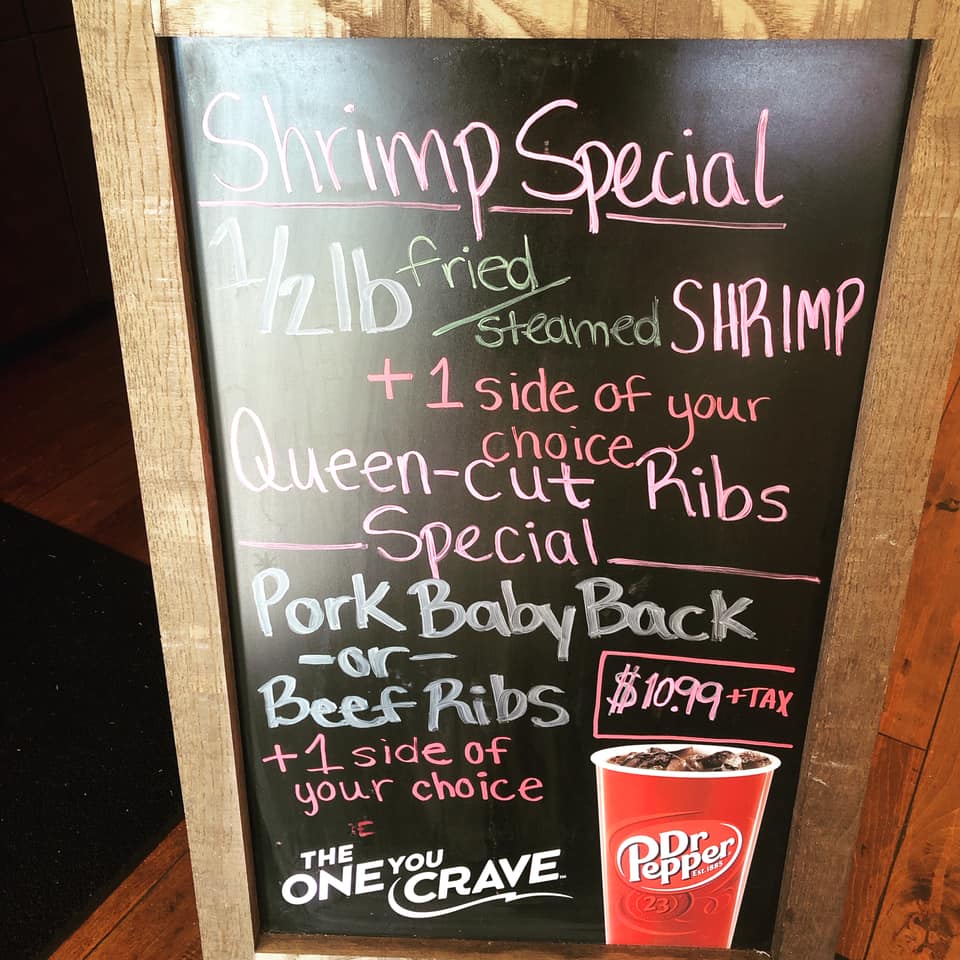 Shrimp Special
1/2 lb fried/steamed SHRIMP
+ 1 side of your
choice
Queen-cut Ribs
Special
Pork Baby Back
-or-
Beef Ribs
$10.99 +TAX
+ 1 side of
your choice
E
THE
ONE YOU
CRAVE™
Dr
Pepper
Est. 1885
23